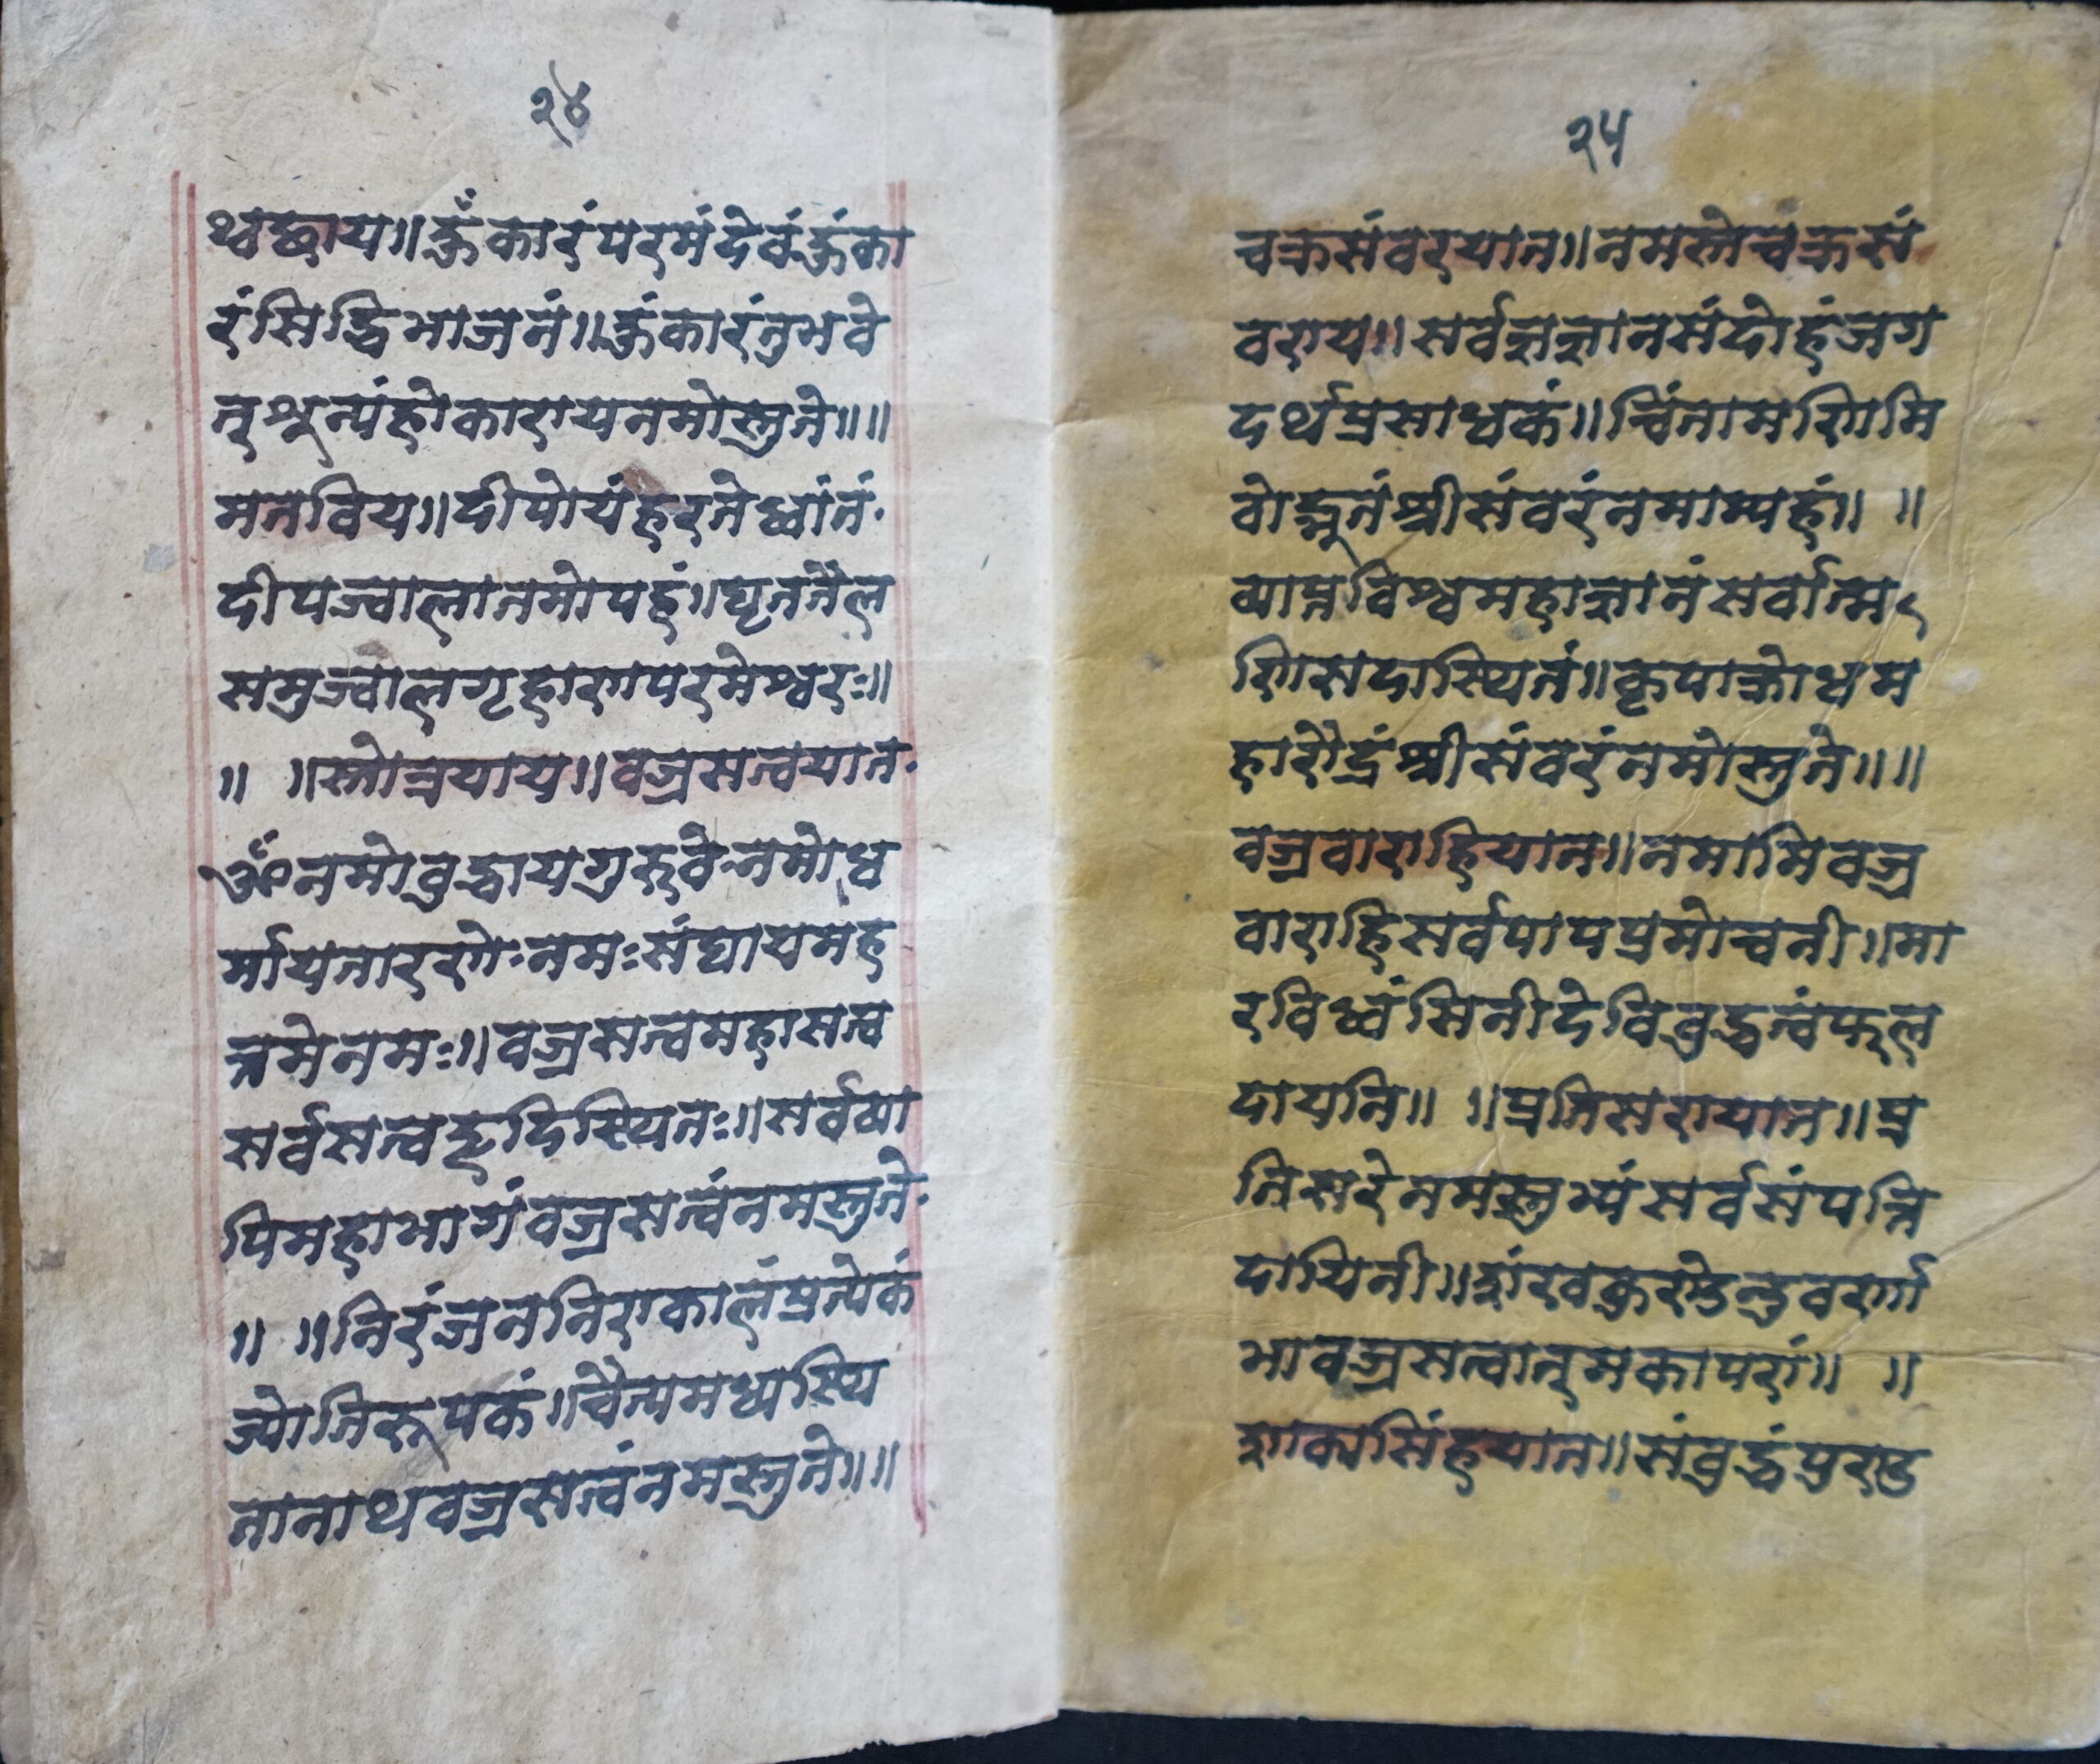 २४
थ्वछाय॥ ह्रूँकारं परमं देवं ह्रूंका
रं सिद्धिभाजनं॥ ह्रूंकारं तु भवे
त् शून्यं होकाराय नमोस्तुते॥ ॥
मतविय॥ दीपोयं हरते ध्वांतं
दीपज्वाला तमोपहं॥ घृततैल
समुज्वाल गृहाण परमेश्वरः॥
॥ ॥ स्तोत्रयाय॥ वज्रसत्वयात
ॐ नमो बुद्धाय गुरुवे नमो ध
र्माय तारणे नमः संघाय मह
त्तमे नमः॥ वज्रसत्व महासत्व
सर्वसत्व हृदिस्थितः॥ सर्वव्या
पि महाभागं वज्रसत्वं नमस्तुते
॥ ॥ निरंजन निराकालं प्रत्येकं
ज्योतिरूपकं॥ चैत्यमध्यस्थि
तानाथ वज्रसत्वं नमस्तुते॥ ॥
२५
चक्रसंवरयात॥ नमस्ते चक्रसं
वराय॥ सर्वज्ञज्ञानसंदोहं जग
दर्थप्रसाधकं॥ चिंतामणिमि
वोद्भूतं श्रीसंवरं नमाम्यहं॥ ॥
व्याप्तविश्वमहाज्ञानं सर्वात्म
णि सदास्थितं॥ कृपाक्रोध म
हारौद्रं श्रीसंवरं नमोस्तुते॥ ॥
वज्रवाराहियात॥ नमामि वज्र
वाराहि सर्वपापप्रमोचनी॥ मा
रविध्वंसिनी देवि बुद्धत्वं फल
दायनि॥ ॥ प्रतिसरायात॥ प्र
तिसरे नमस्तुभ्यं सर्वसंपत्ति
दायिनी॥ शंखकुण्डेन्दुवर्णा
भा वज्रसत्वात्मकापरां॥ ॥
शाक्यसिंहयात॥ संबुद्धं पुण्ड